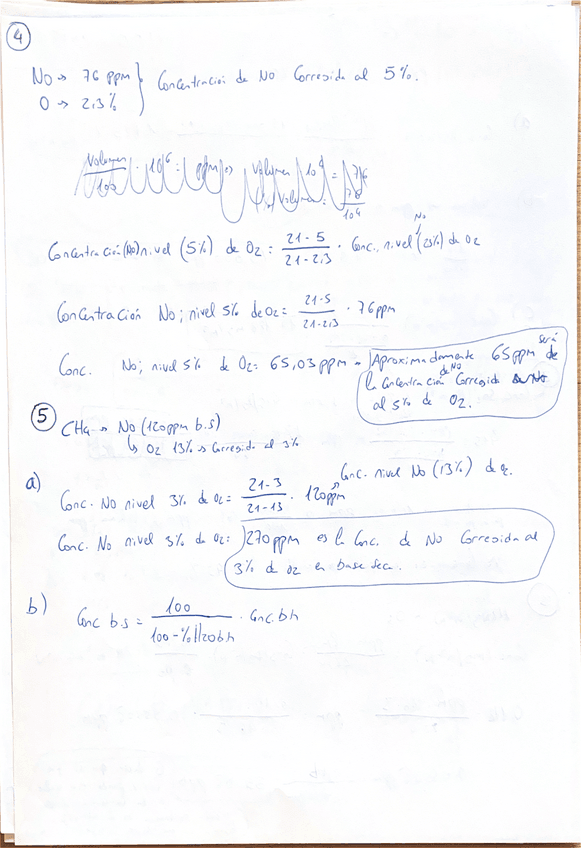 4
No → 76 ppm } Concentración de No Corregida al 5%.
O → 2,3%
Volumen/100 · 10⁶ = ppm ⇒ Volumen 10⁴ = 76
Volumen = 76/10⁴
Concentración (No) nivel (5%) de O2 = 21-5/21-2,3 · Conc. No nivel (2,3%) de O2
Concentración No; nivel 5% de O2 = 21-5/21-2,3 · 76 ppm
Conc. No; nivel 5% de O2 = 65,03 ppm → Aproximadamente 65 ppm será
la Concentración de NO Corregida
al 5% de O2.
5 CH4 → No (120 ppm b.s)
↳ O2 13% → Corregida al 3%
a) Conc. nivel No (13%) de O2.
Conc. No nivel 3% de O2 = 21-3/21-13 · 120 ppm
Conc. No nivel 3% de O2 = 270 ppm es la Conc. de No Corregida al
3% de O2 en base seca.
b) Conc b.s = 100/100-%H2O b.h · Conc. b.h